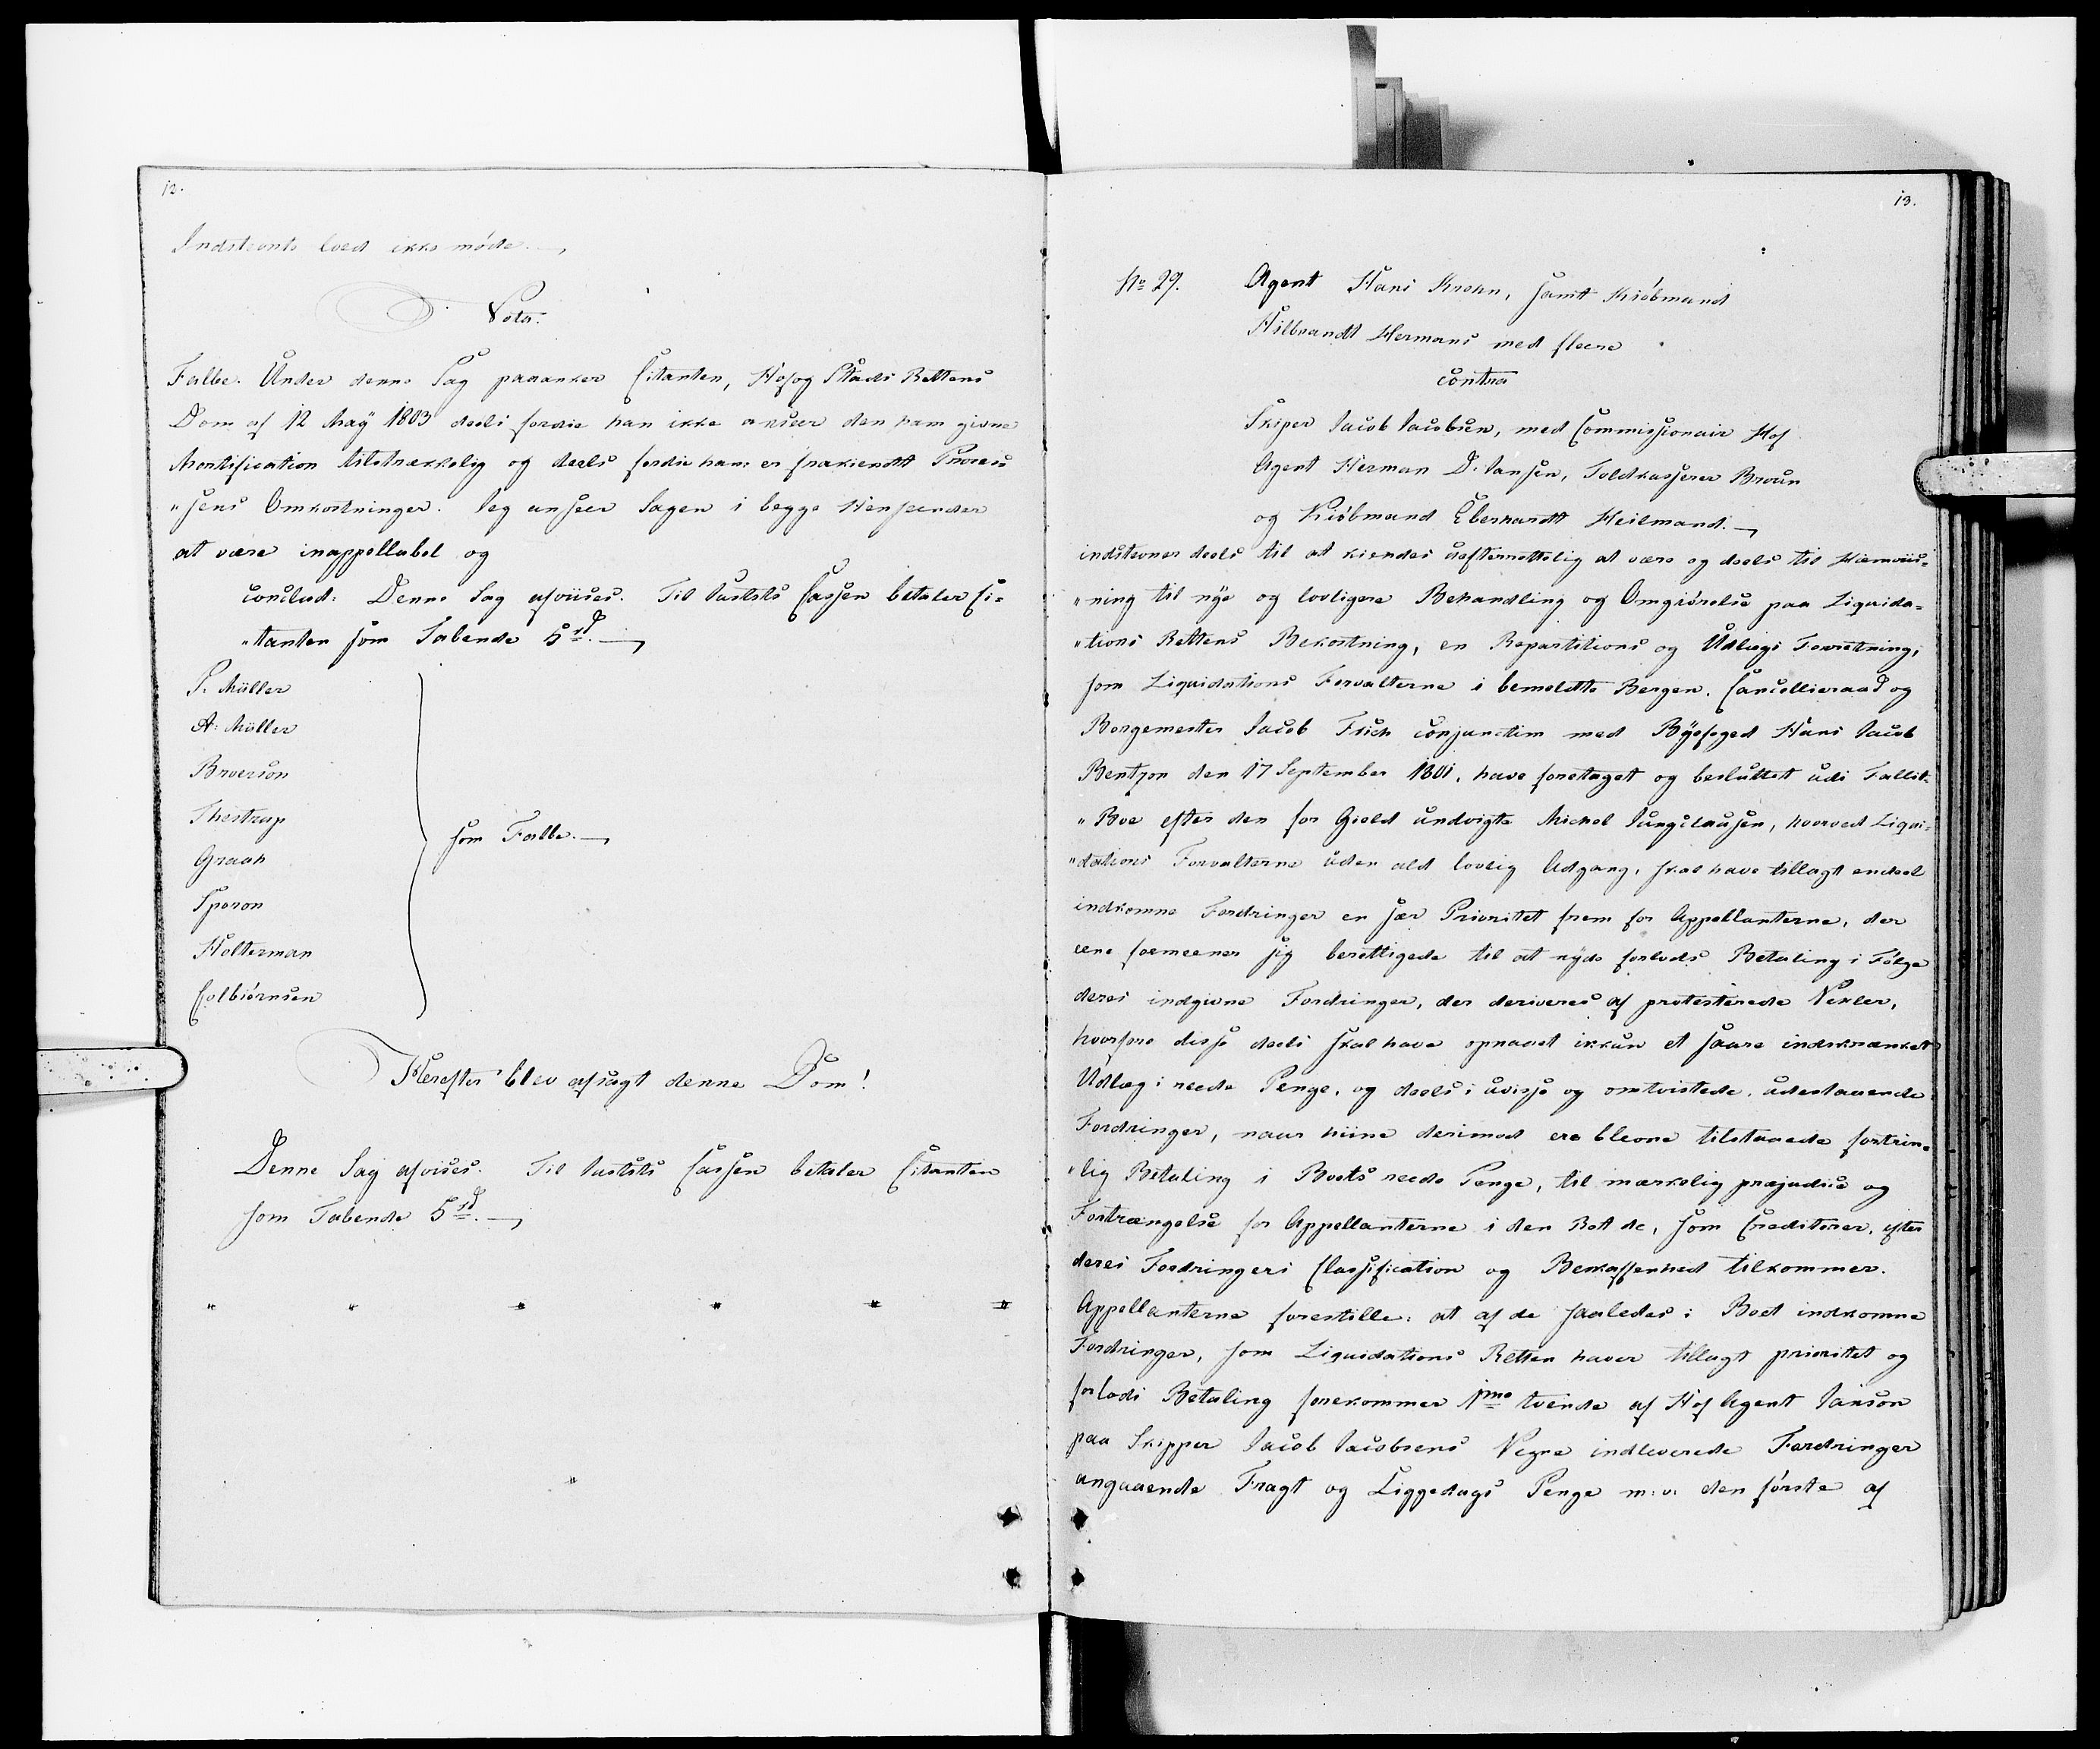 12.
Indstevnte loed ikke møde.
Vota.
Falbe. Under denne Sag paaanker Citanten, Hof og Stads Rettens
Dom af 12 May 1803 deels fordie han ikke anseer den ham givne
Mortification tilstrækkelig og deels fordie ham er frakiendt Proces
"sens Omkostninger. Jeg anseer Sagen i begge Henseender
at være inappellabel og
conclud: Denne Sag afviises. Til Justits Cassen betaler Ci=
"tanten som Tabende 5 rd.
P. Müller
A: Müller
Brorson
Thestrup
Graah
Sporon
Holterman
Colbiörnsen
som Falbe.
Herefter blev afsagt denne Dom!
Denne Sag afvises. Til Justits Cassen betaler Citanten
som Tabende 5 rd.
13.
No 29. Agent Hans Krohn, samt Kiöbmand
Hilbrandt Hermans med fleere
contra
Skiper Jacob Jacobsen, med Commissionair Hof
Agent Herman D. Jansen, Toldkasserer Broun
og Kiöbmand Eberhardt Heilmand.
indstevner deels til at kiendes uefterrettelig at være og deels til Hiemviis=
"ning til nye og lovligere Behandling og Omgiörelse paa Liquida=
"tions Rettens Bekostning, en Repartitions og Udlægs Forretning,
som Liquidations Forvalterne i bemeldte Bergen. Cancellieraad og
Borgemester Jacob Fisch conjunctim med Byefoged Hans Jacob
Bentzon den 17 September 1801. have foretaget og besluttet udi Fallit-
"Boe efter den for Gield undvigte Michel Jungclausen, hvorved Liqui-
"dations Forvalterne uden ald lovlig Adgang, skal have tillagt endeel
indkomne Fordringer en sær Prioritet frem for Appellanterne, der
ene formeener sig berettigede til at nyde forlods Betaling i Følge
deres indgivne Fordringer, der deriveres af protesterede Vexler,
hvorfore disse deels skal have opnaaet ikkun et saare indskrænket
Udlæg i reede Penge, og deels i uvisse og omtvistede, udestaaende
Fordringer, naar hiine derimod ere blevne tilstaaede fortrin-
"lig Betaling i Boets reede Penge, til mærkelig præjudice og
Fortrængelse for Appellanterne i den Ret de, som Creditorer, efter
deres Fordringers Classification og Beskaffenhed tilkommer.
Appellanterne forestille: at af de saaledes i Boet indkomne
Fordringer, som Liquidations Retten haver tillagt prioritet og
forlods Betaling forekommer 1mo tvende af Hof Agent Janson
paa Skipper Jacob Jacobsens Vegne indleverede Fordringer
angaaende Fragt og Liggedags Penge m: v: den første af